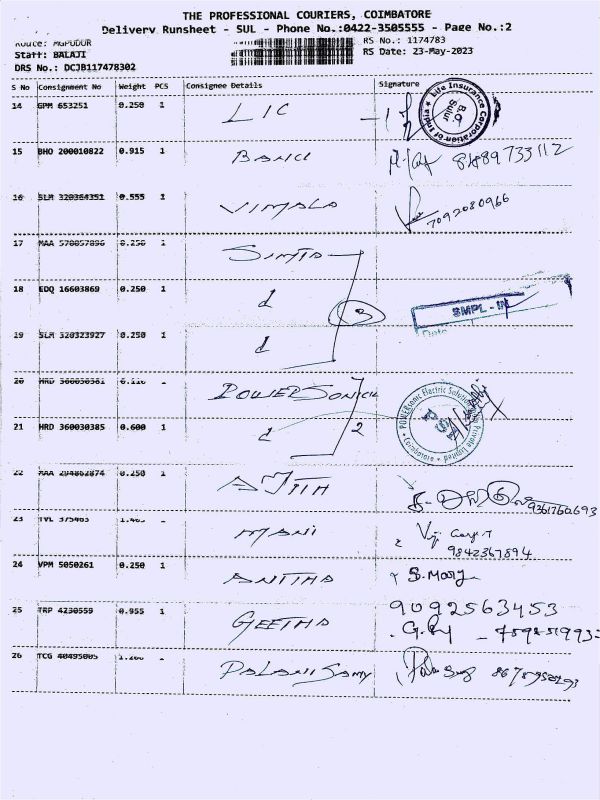 THE PROFESSIONAL COURIERS, COIMBATORE
Delivery Runsheet - SUL - Phone No.:0422-3505555 - Page No.:2
RS No.: 1174783
Staff: BALAJI RS Date: 23-May-2023
DRS No.: DCJB117478302
S No Consignment No Weight PCS Consignee Details Signature
14 GPM 653251 0.250 1 LIC
Life Insurance Corporation of India
B.O. Sulur
15 BHO 200010822 0.915 1
16 SLM 320364351 0.555 1 VIMALA 7092080966
17 MAA 570857896 0.250 1
18 EDQ 16603869 0.250 1 3 SMPL - IN
Date
19 SLM 320323927 0.250 1
20 HRD 360030381 POWERSONIC
POWERsonic Electric Solutions Private Limited
Coimbatore
21 HRD 360030385 0.600 1 2
22 MAA 294862874 0.250 1 AJITH 9361760693
23 TVL MANI 9842367894
24 VPM 5050261 0.250 1 ANITHA S. Mary
25 TRP 4230559 0.955 1 GEETHA 9092563453
26 TCG PALANISAMY